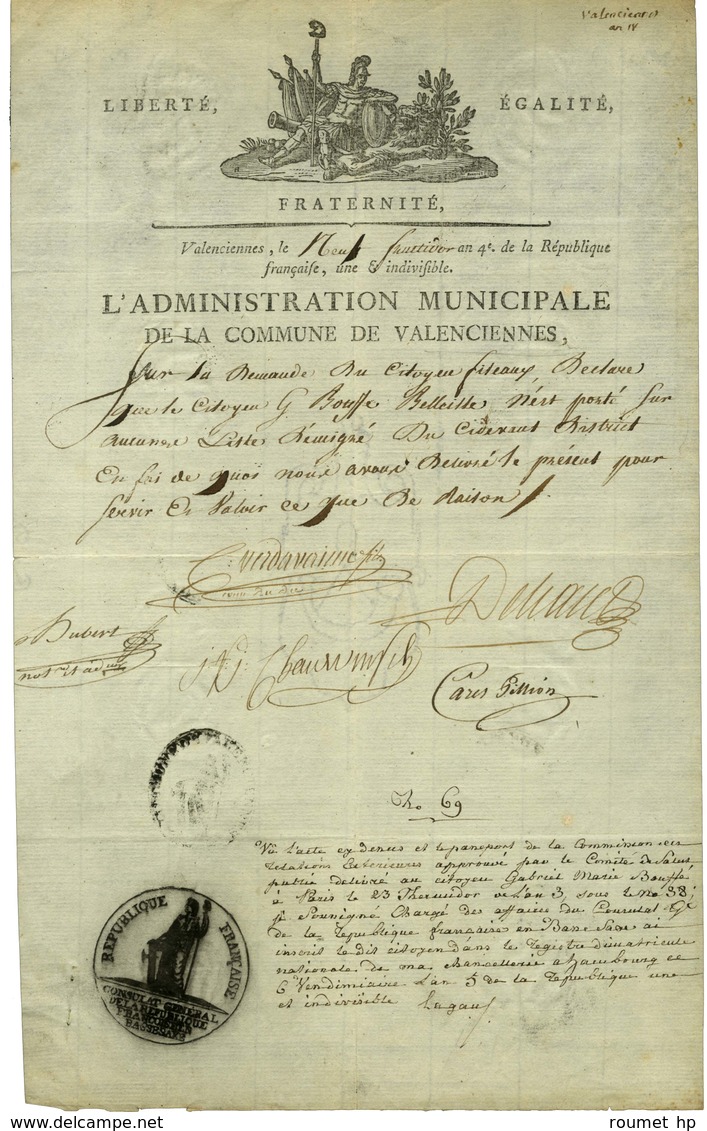 Valenciennes
an IV
LIBERTÉ, ÉGALITÉ,
FRATERNITÉ,
Valenciennes, le Neuf fructidor an 4e. de la République
françaiſe, une & indiviſible.
L'ADMINISTRATION MUNICIPALE
DE LA COMMUNE DE VALENCIENNES,
Sur la Demande Du Citoyen fiteaux Declare
que le Citoyen G Bouffé Belleisle N'est porté sur
aucunne Liste D'émigré Du Cidevant District
En foi de quoi nous avons Delivré le présent pour
servir Et Valoir ce que De Raison
Verdavainne fils
Hubert
J. Chauvin fils
Cârez Pillion
No 69
Vû l'acte cy dessus et le passeport de la Commission des
relations Exterieures approuvé par le Comité de Salut
public delivré au citoyen Gabriel Marie Bouffé
à Paris le 23 Thermidor de L'an 3, sous le No 38;
je Soussigné Chargé des affaires du Consulat Gal
de la Republique française en Basse Saxe ai
inscrit le dit citoyen dans le registre d'immatricule
nationale de ma chancellerie a hambourg ce
6 Vendimiaire L'an 5 de la republique une
et indivisible Lagau
REPUBLIQUE FRANÇAISE
CONSULAT GÉNÉRAL
DE LA REPUBLIQUE
FRANÇAISE EN
BASSE SAXE
roumet hp